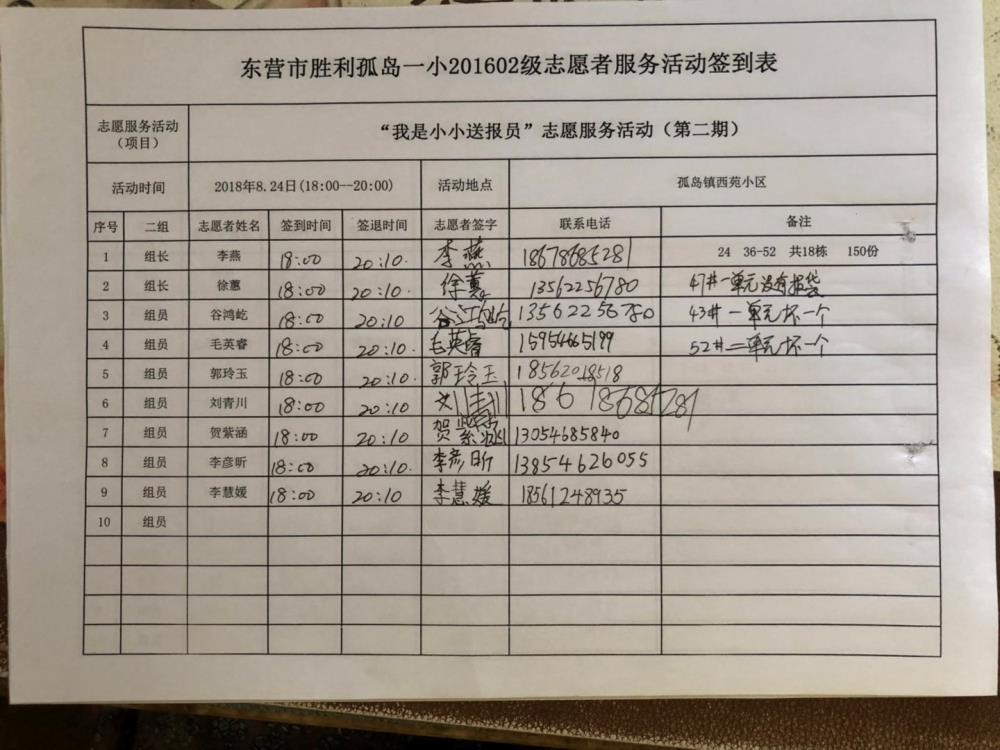 东营市胜利孤岛一小201602级志愿者服务活动签到表
志愿服务活动（项目） “我是小小送报员”志愿服务活动（第二期）
活动时间 2018年8.24日(18:00--20:00) 活动地点 孤岛镇西苑小区
序号 二组 志愿者姓名 签到时间 签退时间 志愿者签字 联系电话 备注
1 组长 李燕 18:00 20:10. 李燕 18678685281 24 36-52 共18栋 150份
2 组长 徐蕙 18:00 20:10. 徐蕙 13562256780 47#一单元没有报袋
3 组员 谷鸿屹 18:00 20:10 谷鸿屹 13562256780 43#一单元坏一个
4 组员 毛英睿 18:00 20:10. 毛英睿 15954665199 52#二单元坏一个
5 组员 郭玲玉 18:00 20:10. 郭玲玉 18562018518
6 组员 刘青川 18:00 20:10 刘青川
7 组员 贺紫涵 18:00 20:10 贺紫涵 13054685840
8 组员 李彦昕 18:00 20:10. 李彦昕 13854626055
9 组员 李慧媛 18:00 20:10 李慧媛 18561248935
10 组员